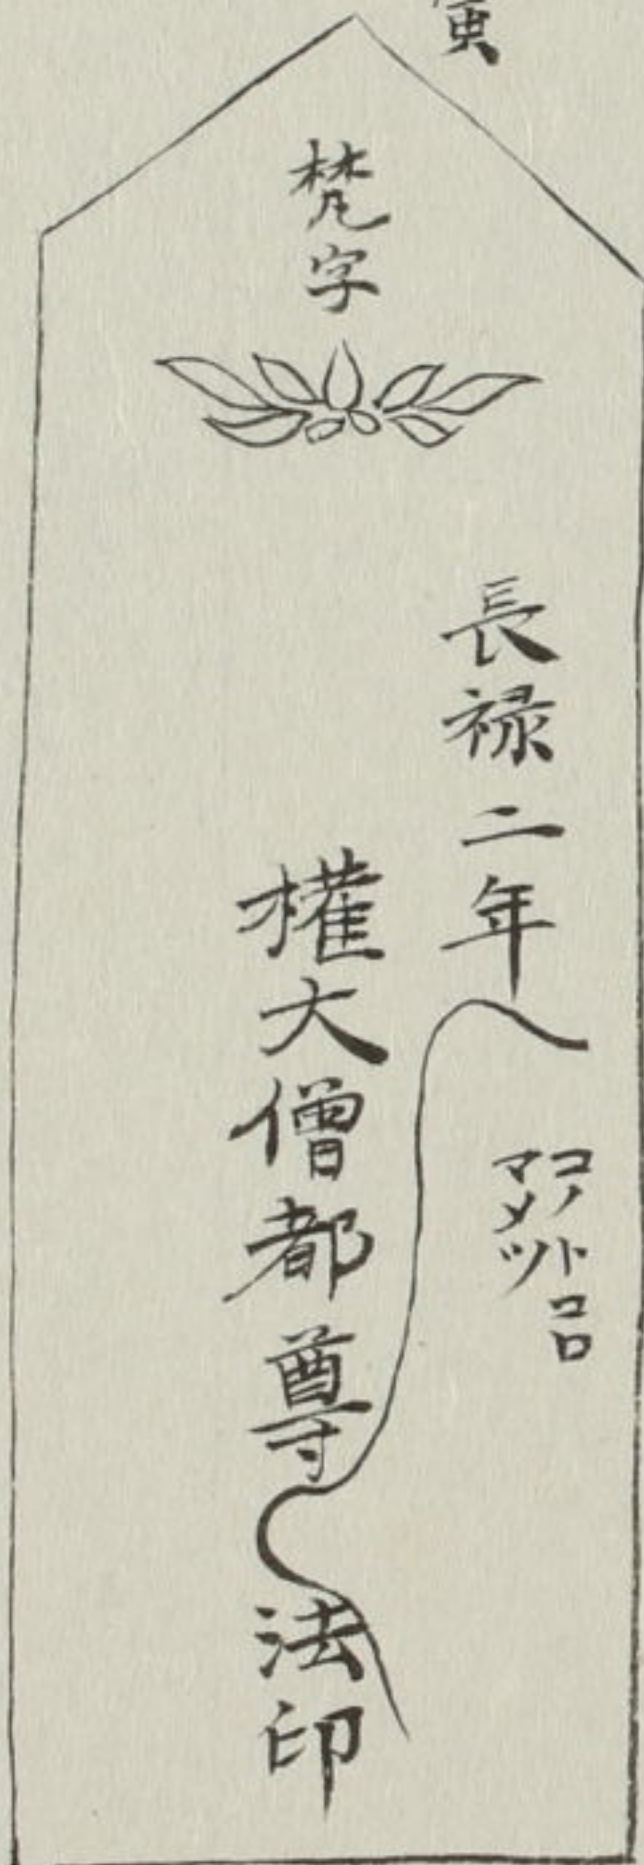 寅
梵字
長禄二年
コノトコロ
マメツ
権大僧都尊
法印